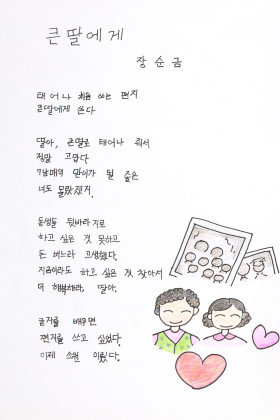 큰딸에게
장순금
태어나 처음 쓰는 편지
큰딸에게 쓴다
딸아, 큰딸로 태어나 줘서
정말 고맙다
7남매의 맏이가 될 줄은
너도 몰랐겠지.
동생들 뒷바라지로
하고 싶은 것 못하고
돈 버느라 고생했다.
지금이라도 하고 싶은 것 찾아서
더 행복해라, 딸아.
글자를 배우면
편지를 쓰고 싶었다.
이제 소원 이뤘다.